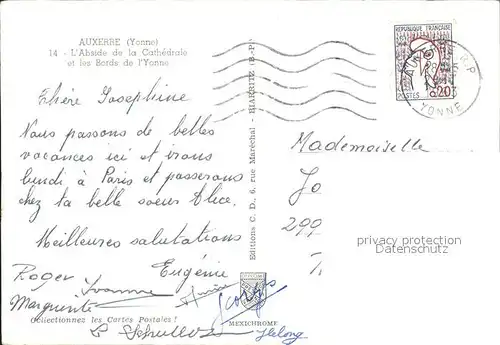 AUXERRE (Yonne)
14 - L'Abside de la Cathédrale
et les Bords de l'Yonne
Chère Josephine
Nous passons de belles
vacances ici et irons
lundi à Paris et passerons
chez la belle soeur Alice.
Meilleures salutations
Eugénie
Roger Yvonne
Marguerite
Georges
Collectionnez les Cartes Postales !
MEXICHROME
Editions C. D., 6, rue Maréchal - BIARRITZ (B.-P.)
REPUBLIQUE FRANÇAISE
POSTES 0,20
R.P
YONNE
Mademoiselle
Jo
299
privacy protection
Datenschutz